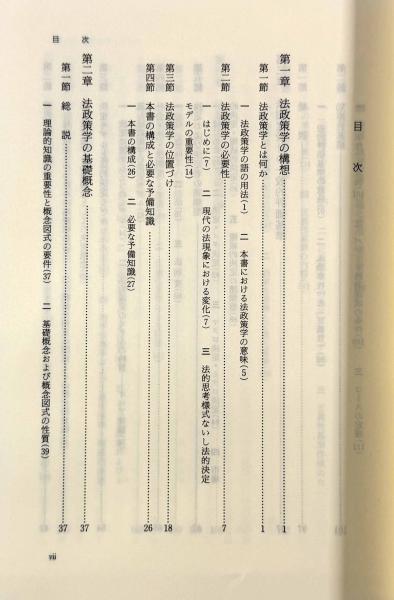 目　次
第一章　法政策学の構想……1
第一節　法政策学とは何か……1
一　法政策学の語の用法(1)　二　本書における法政策学の意味(5)
第二節　法政策学の必要性……7
一　はじめに(7)　二　現代の法現象における変化(7)　三　法的思考様式ないし法的決定
モデルの重要性(14)
第三節　法政策学の位置づけ……18
第四節　本書の構成と必要な予備知識……26
一　本書の構成(26)　二　必要な予備知識(27)
第二章　法政策学の基礎概念……37
第一節　総　説……37
一　理論的知識の重要性と概念図式の要件(37)　二　基礎概念および概念図式の性質(39)
目　次
vii